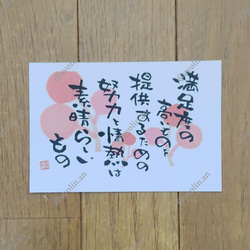 満足度の
高いものを
提供するための
努力と情熱は
素晴らしい
もの